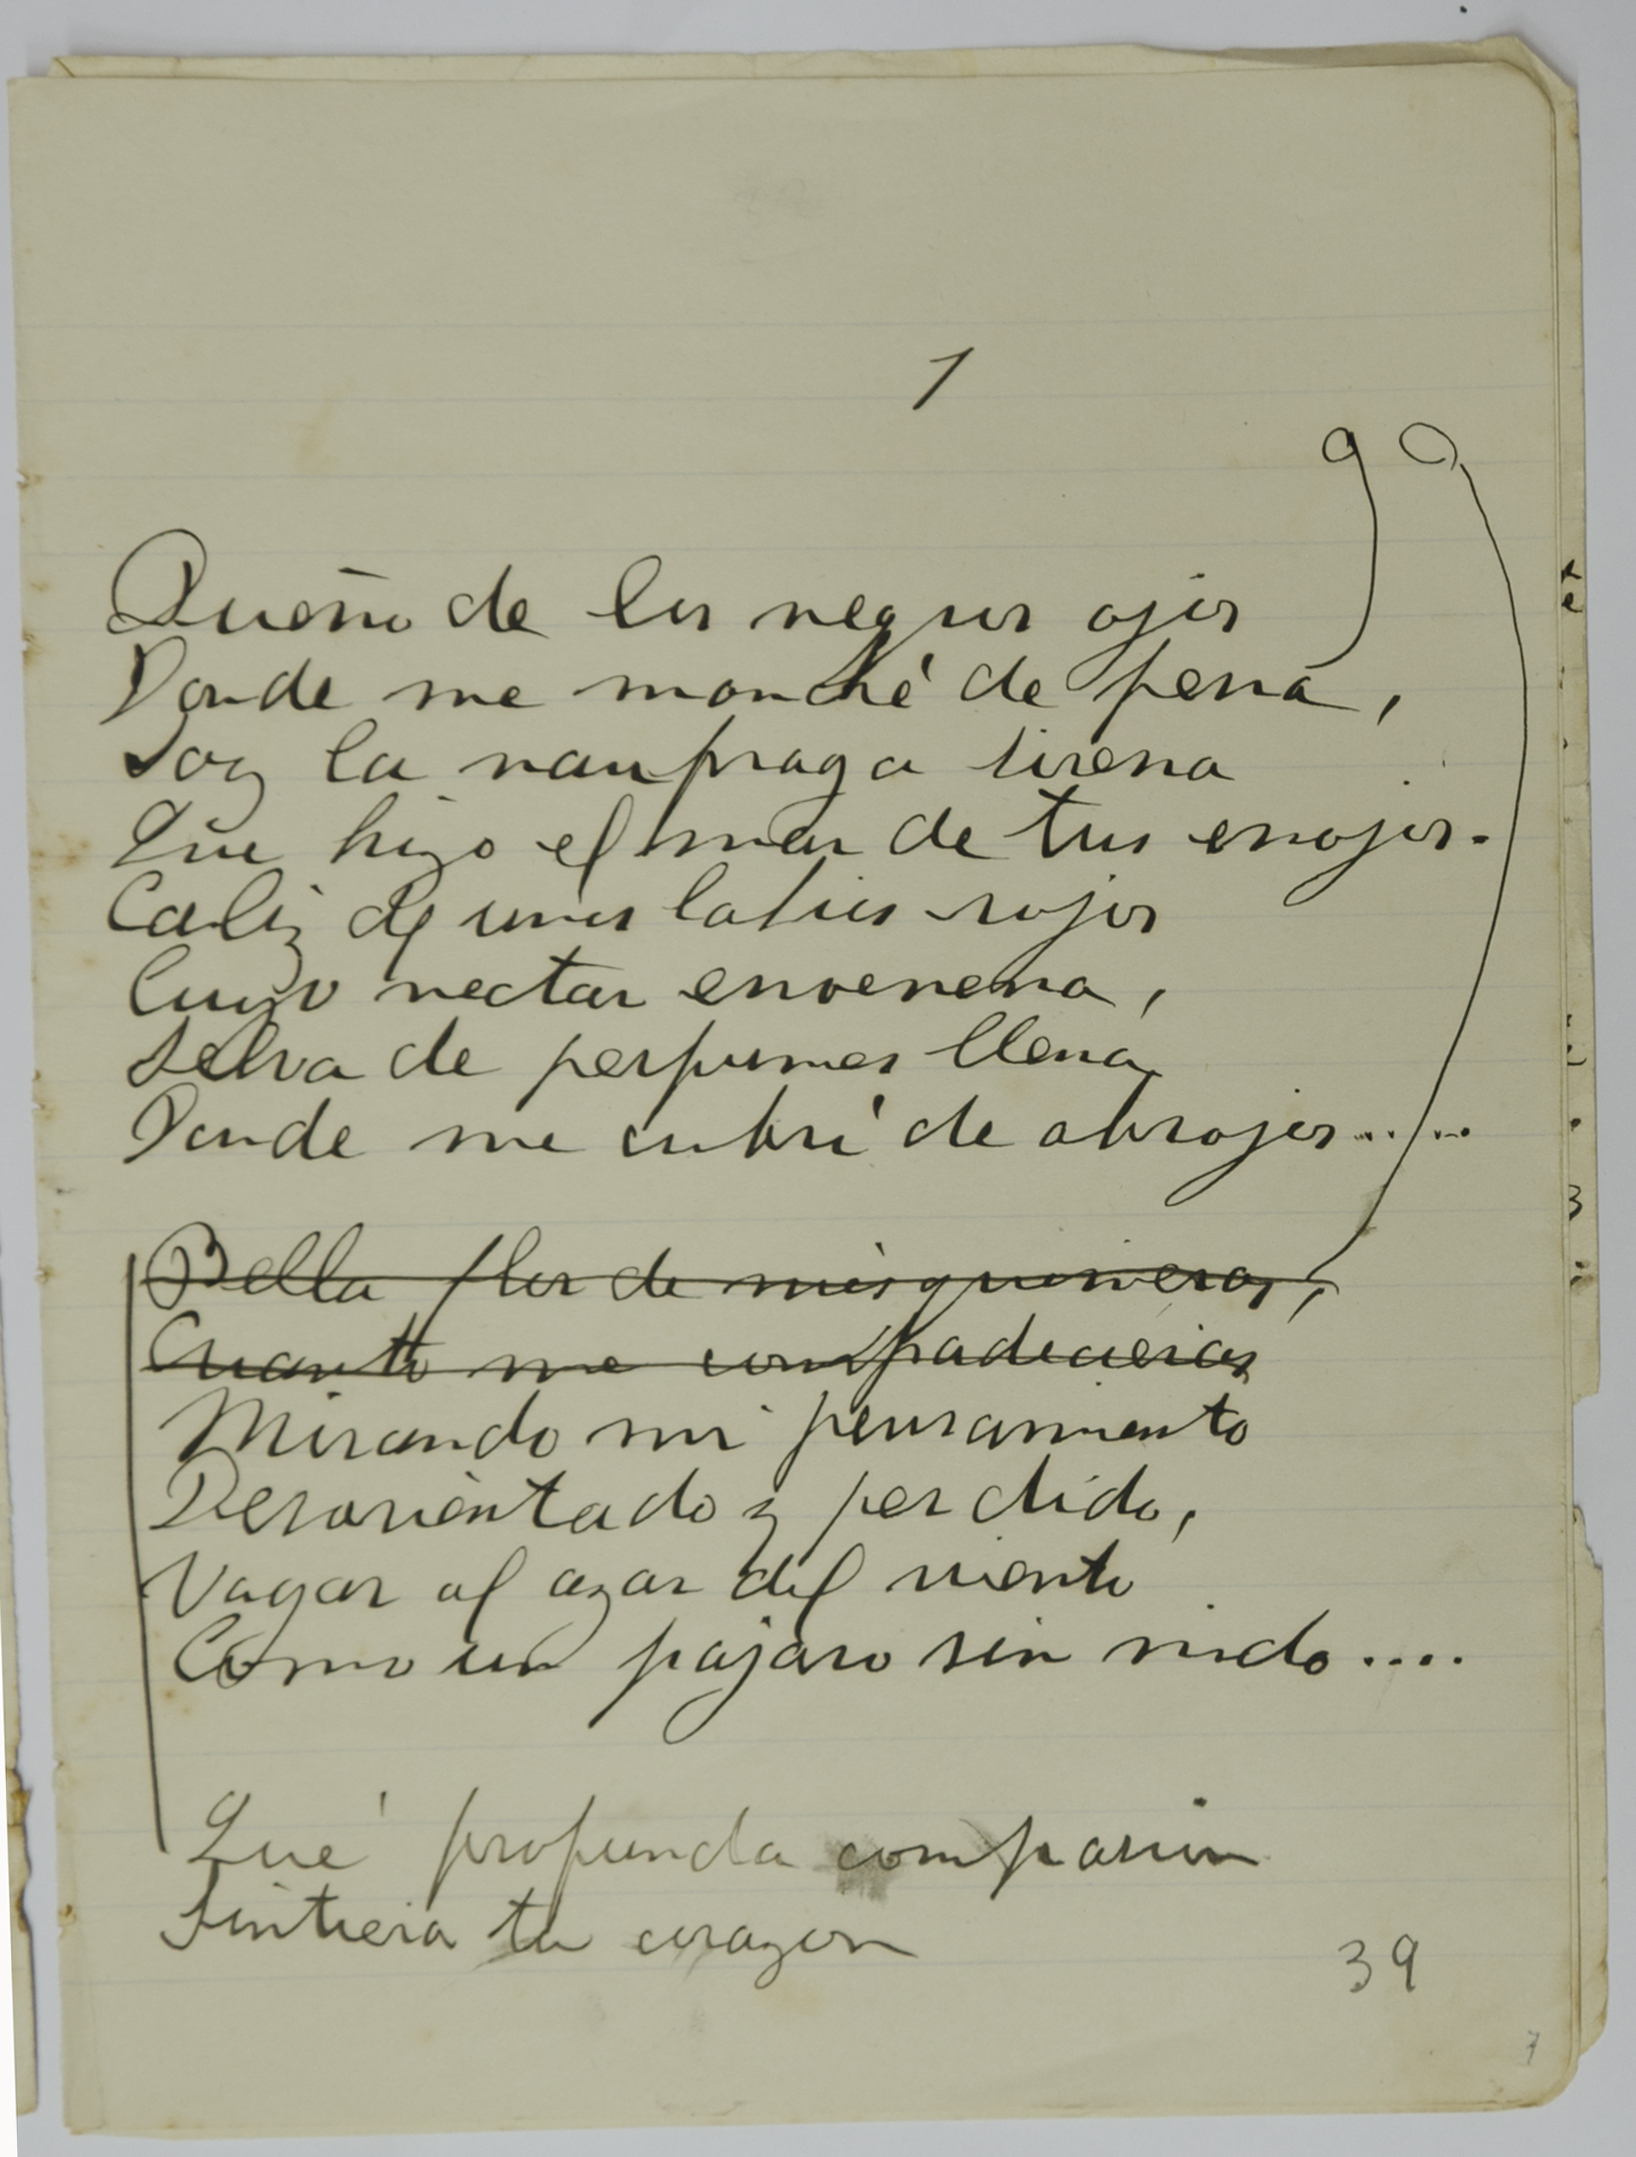 1
Dueño de los negros ojos
Donde me manché de pena,
Soy la naufraga sirena
Que hizo el mar de tus enojos.
Caliz de unos labios rojos
Cuyo nectar envenena,
Selva de perfumes llena
Donde me cubrí de abrojos.....
Bella flor de mis quimeras,
Cuanto me compadecieras
Mirando mi pensamiento
Desorientado y perdido,
Vagar al azar del viento
Como un pajaro sin nido....
Qué profunda compasion
Sintiera tu corazon
39